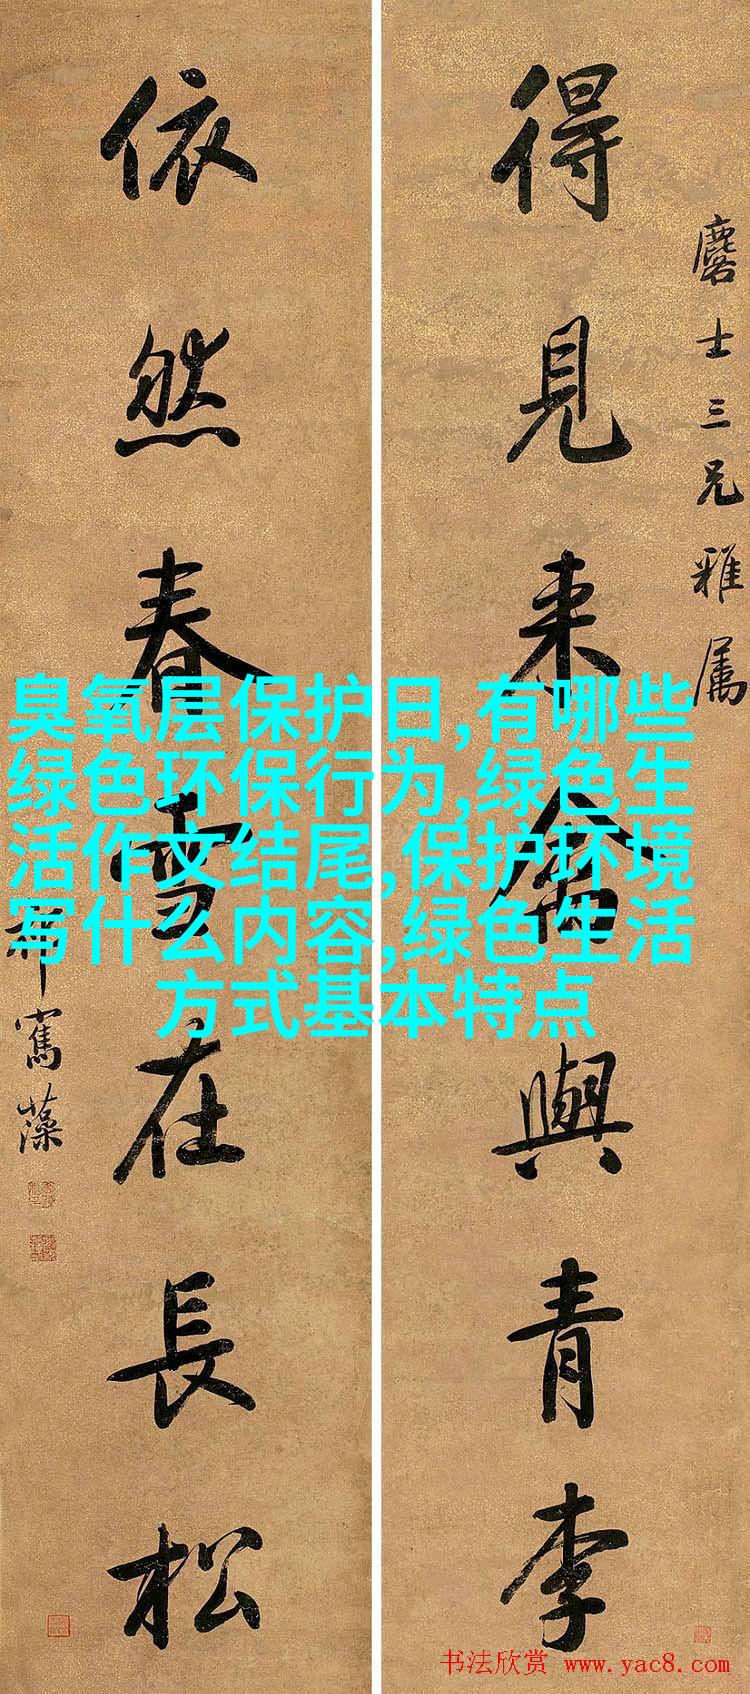 得見来禽與青李
麐士三兄雅属
依然春雪在長松
祁寯藻
臭氧层保护日,有哪些
绿色环保行为,绿色生
活作文结尾,保护环境
写什么内容,绿色生活
方式基本特点
书法欣赏 www.yac8.com